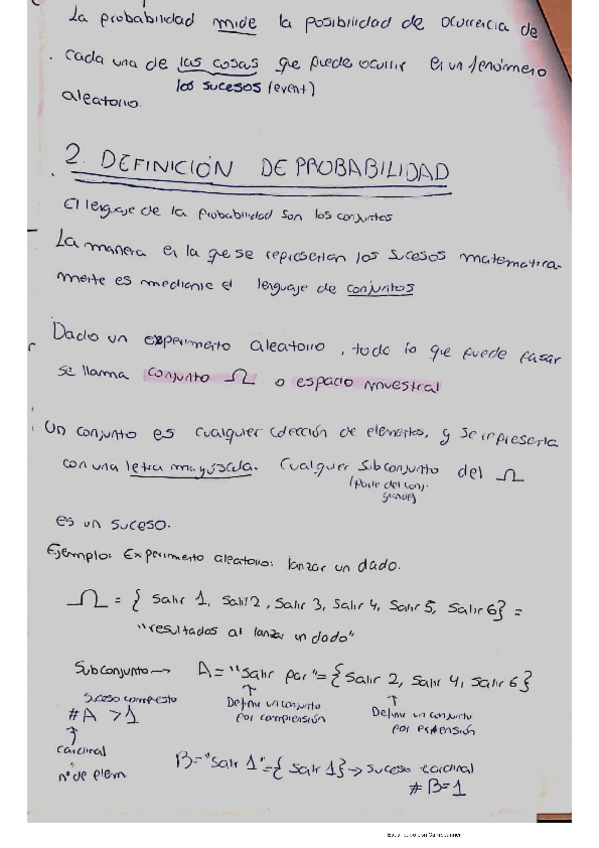 La probabilidad mide la posibilidad de ocurrencia de
cada una de las cosas que puede ocurrir en un fenómeno
los sucesos (event)
aleatorio.
2. DEFINICIÓN DE PROBABILIDAD
El lenguaje de la probabilidad son los conjuntos
La manera en la que se representan los sucesos matematica-
mente es mediante el lenguaje de conjuntos
Dado un experimento aleatorio, todo lo que puede pasar
se llama conjunto Ω o espacio muestral
Un conjunto es cualquier colección de elementos, y se representa
con una letra mayúscula. Cualquier subconjunto del Ω
(parte del conj.
grande)
es un suceso.
Ejemplo: Experimento aleatorio: lanzar un dado.
Ω = { Salir 1, Salir 2, Salir 3, Salir 4, Salir 5, Salir 6} =
"resultados al lanzar un dado"
Subconjunto → A = "Salir par" = {Salir 2, Salir 4, Salir 6}
Suceso compuesto
# A > 1
Definir un conjunto
por comprensión
Definir un conjunto
por extensión
cardinal
nº de elem
B = "Salir 1" = { Salir 1} → suceso cardinal
# B = 1